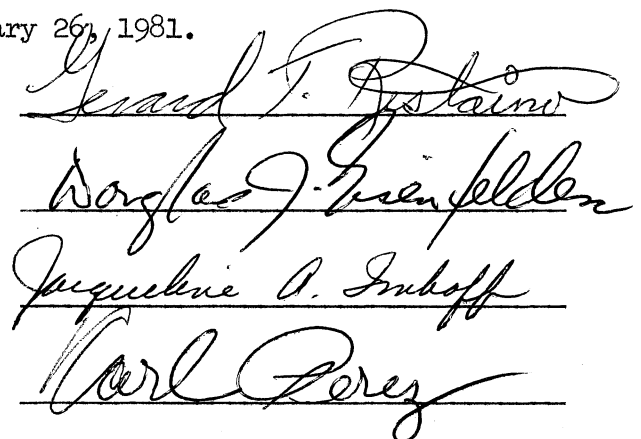 ary 26, 1981.
Gerard T. Ristaino
Douglas J. Eisenfelder
Jacqueline A. Imhoff
Karl Perez